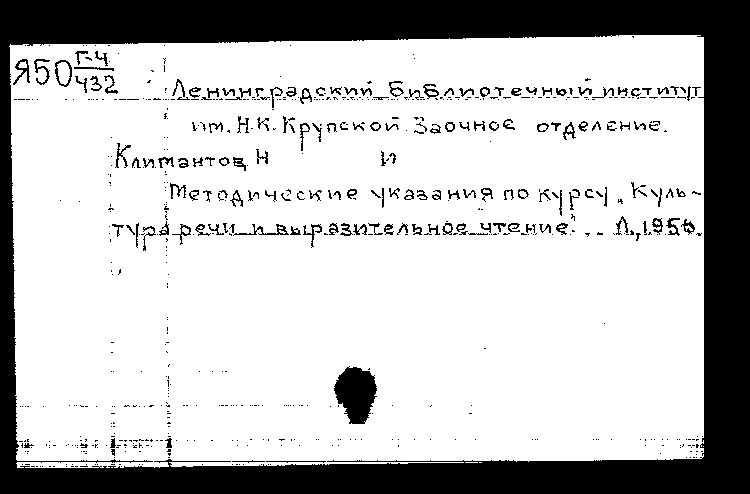 Я50 Г-4/432
Ленинградский библиотечный институт
им. Н.К. Крупской. Заочное отделение.
Климантов, Н И
Методические указания по курсу „Куль-
тура речи и выразительное чтение". Л., 1956.